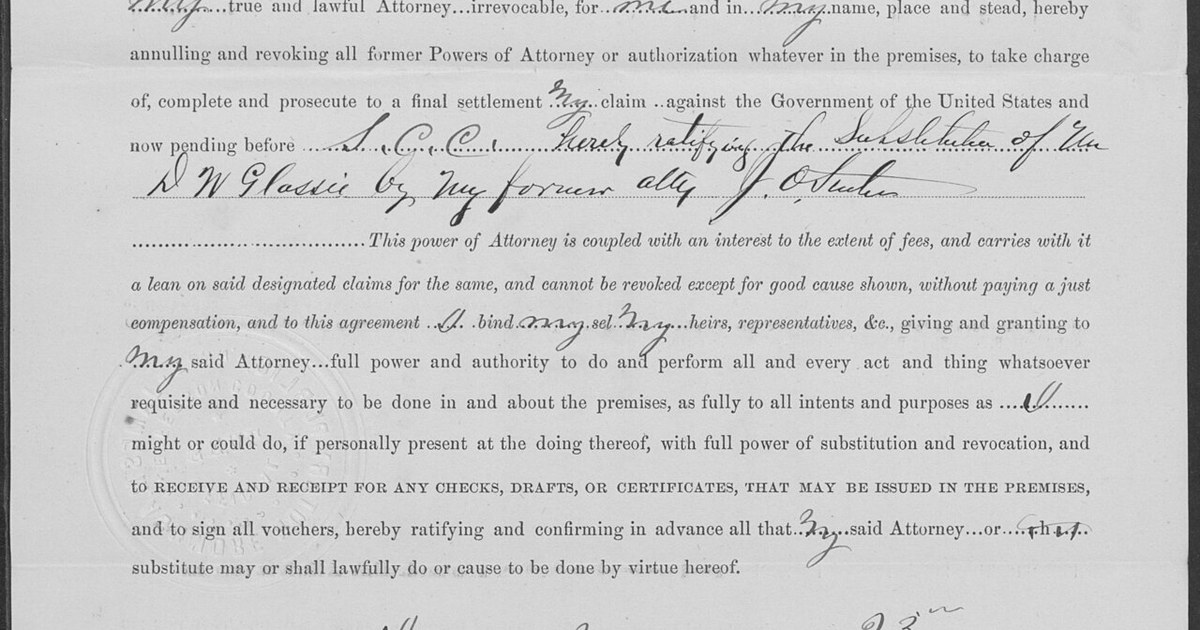 my...true and lawful Attorney...irrevocable, for...me...and in...my...name, place and stead, hereby
annulling and revoking all former Powers of Attorney or authorization whatever in the premises, to take charge
of, complete and prosecute to a final settlement my claim ..against the Government of the United States and
now pending before ....S. C. C. hereby ratifying the Substitution of Wm
D W Glassie by my former atty J. O.
....................................This power of Attorney is coupled with an interest to the extent of fees, and carries with it
a lean on said designated claims for the same, and cannot be revoked except for good cause shown, without paying a just
compensation, and to this agreement ..I. .bind my sel my...heirs, representatives, &c., giving and granting to
my said Attorney...full power and authority to do and perform all and every act and thing whatsoever
requisite and necessary to be done in and about the premises, as fully to all intents and purposes as ....I.......
might or could do, if personally present at the doing thereof, with full power of substitution and revocation, and
to RECEIVE AND RECEIPT FOR ANY CHECKS, DRAFTS, OR CERTIFICATES, THAT MAY BE ISSUED IN THE PREMISES,
and to sign all vouchers, hereby ratifying and confirming in advance all that..my..said Attorney...or
substitute may or shall lawfully do or cause to be done by virtue hereof.